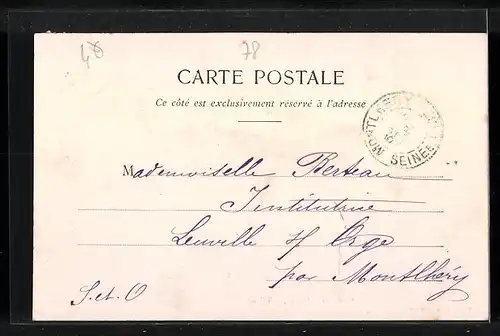 48 78
CARTE POSTALE
Ce côté est exclusivement réservé à l'adresse
MONTLHERY
SEINE
Mademoiselle Berteau
Institutrice
Leuville s/ Orge
par Montlhéry
S. et. O